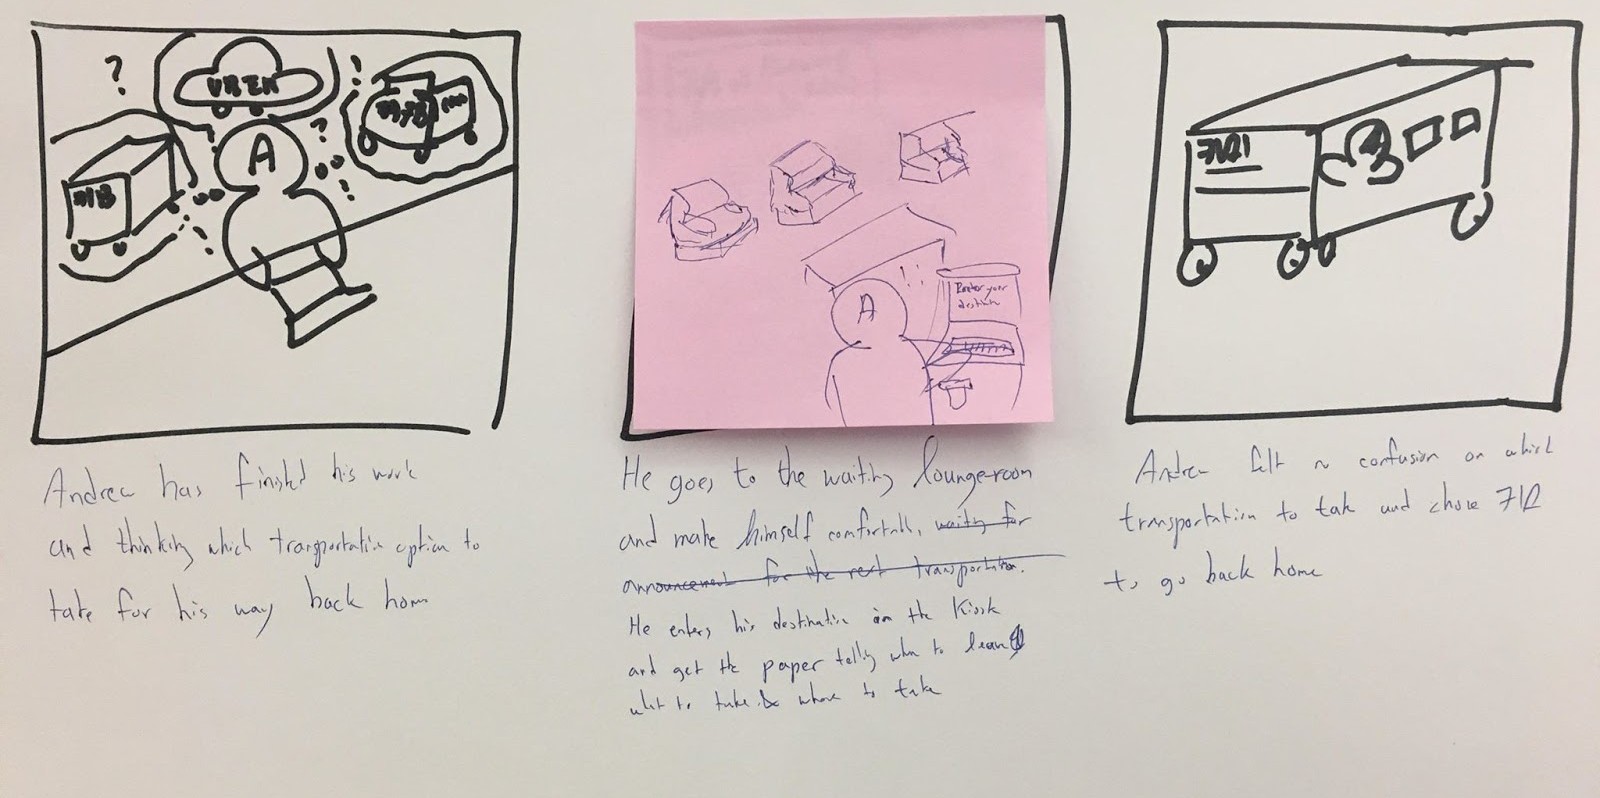 ?
UBER
?
?
71B
A
?
A
Enter your
destinati
Andrea has finished his work
and thinking which transportation option to
take for his way back home
He goes to the waiting lounge-room
and make himself comfortable, waiting for
announcement for the next transportation.
He enters his destination in the Kiosk
and get the paper telling when to leave
what to take & where to take
Andrea felt no confusion on which
transportation to take and chose 71D
to go back home